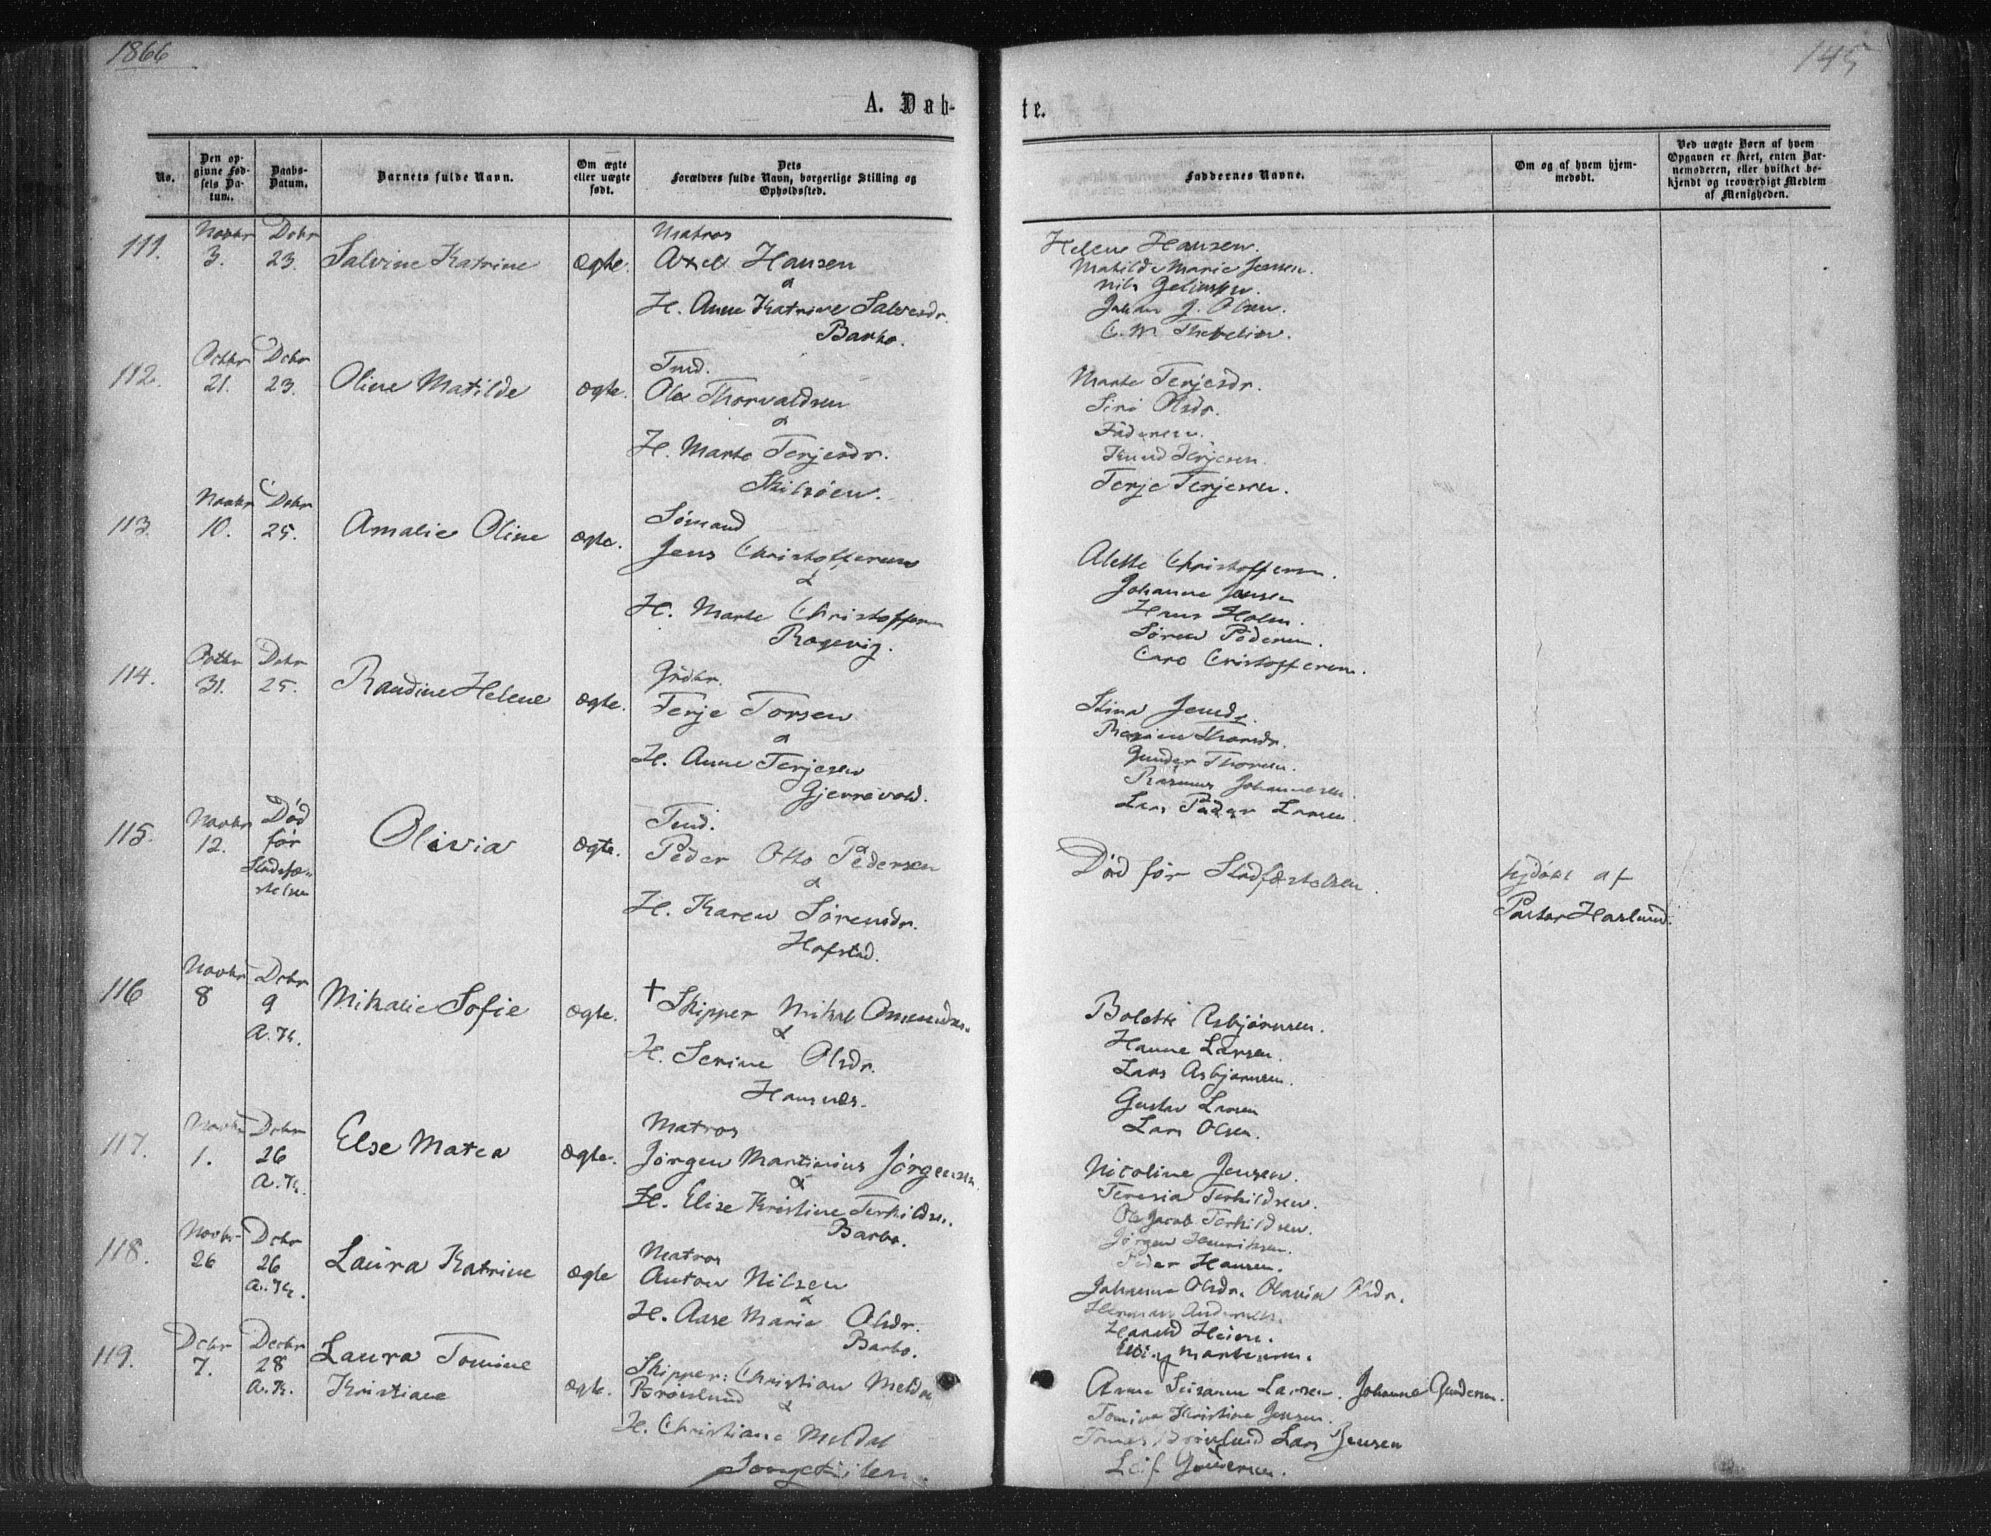 1866
145
A. Døb-
te.
No.
Den op-
givne Fød-
sels Da-
tum.
Daabs-
Datum.
Barnets fulde Navn.
Om ægte
eller uægte
født.
Dets
Forældres fulde Navn, borgerlige Stilling og
Opholdssted.
Faddernes Navne.
Om og af hvem hjem-
medøbt.
Ved uægte Børn af hvem
Opgaven er skeet, enten Bar-
nemoderen, eller hvilket be-
kjendt og troværdigt Medlem
af Menigheden.
111.
Novbr
3.
Dcbr
23.
Salvine Katrine
Ægte.
Matros
Axel Hansen
&
H. Anne Katrine Salvesdr.
Barbo.
Helene Hansen.
Matilde Marie Jensen.
Nils
Johan J. Olsen.
C. M.
112.
Octbr
21.
Dcbr
23.
Oline Matilde
Ægte.
Tmd.
Ole Thorvaldsen
&
H. Marte Terjesdr.
Skilsøen.
Marte Terjesdr.
Siri Olsdr.
Faderen.
Knud Terjesen.
Terje Terjesen.
113.
Novbr
10.
Dcbr
25.
Amalie Oline
Ægte.
Sømand
Jens Christoffersen
&
H. Marte Christoffersen
Rægevig.
Alette Christoffersen.
Johanne Jensen
Hans Holm.
Søren Pedersen.
Caro Cristoffersen.
114.
Octbr
31.
Dcbr
25.
Randine Helene
Ægte.
Grdbr.
Terje Torsen
&
H. Anne Terjesen
Gjerrevold.
Stina
Thorsdr.
Gunder Thorsen.
Rasmus Johannesen.
Lars Peder Larsen.
115.
Novbr
12.
Død
før
Stadsfæ-
stelsen
Olivia
Ægte.
Tmd.
Peder Otto Pedersen
&
H. Karen Sørensdr.
Hofstad.
Død før Stadfæstelsen.
hjdøbt af
Pastor Haslund.
116
Novbr
8
Dcbr
9
A.K.
Mikalie Sofie
Ægte.
+ Skipper Mikal Amundsen
&
H. Serine Olsdr.
Hansnæs.
Bolette Asbjørnsen.
Hanne Larsen.
Lars Asbjørnsen.
Gustav Larsen
Lars Olsen.
117.
Novbr
1.
Dcbr
26
A.K.
Else Matea
Ægte.
Matros
Jørgen Martinius Jørgensen.
&
H. Elise Kristine Terkildsen.
Barbo.
Nicoline Jensen.
Teresia Terkildsen.
Ole Jacob Terkildsen.
Jørgen Henriksen.
Peder Hansen.
118.
Novbr
26
Dcbr
26
A.K.
Laura Katrine
Ægte
Matros
Anton Nilsen
&
H. Aase Marie Olsdr.
Barbo.
Johanne Olsdr. Olavia Olsdr.
Herman Andersen.
Harald Heien.
119.
Dcbr
7.
Decbr
28
A.K.
Laura Tomine
Kristiane
Ægte.
Skipper: Christian Meldal
Brovlund
&
H. Christiane Meldal
Songekilen.
Anne Susanne Larsen. Johanne Gundersen.
Tomine Kristine Jensen.
Tomas Brovlund Lars Jensen
Leif Gundersen.